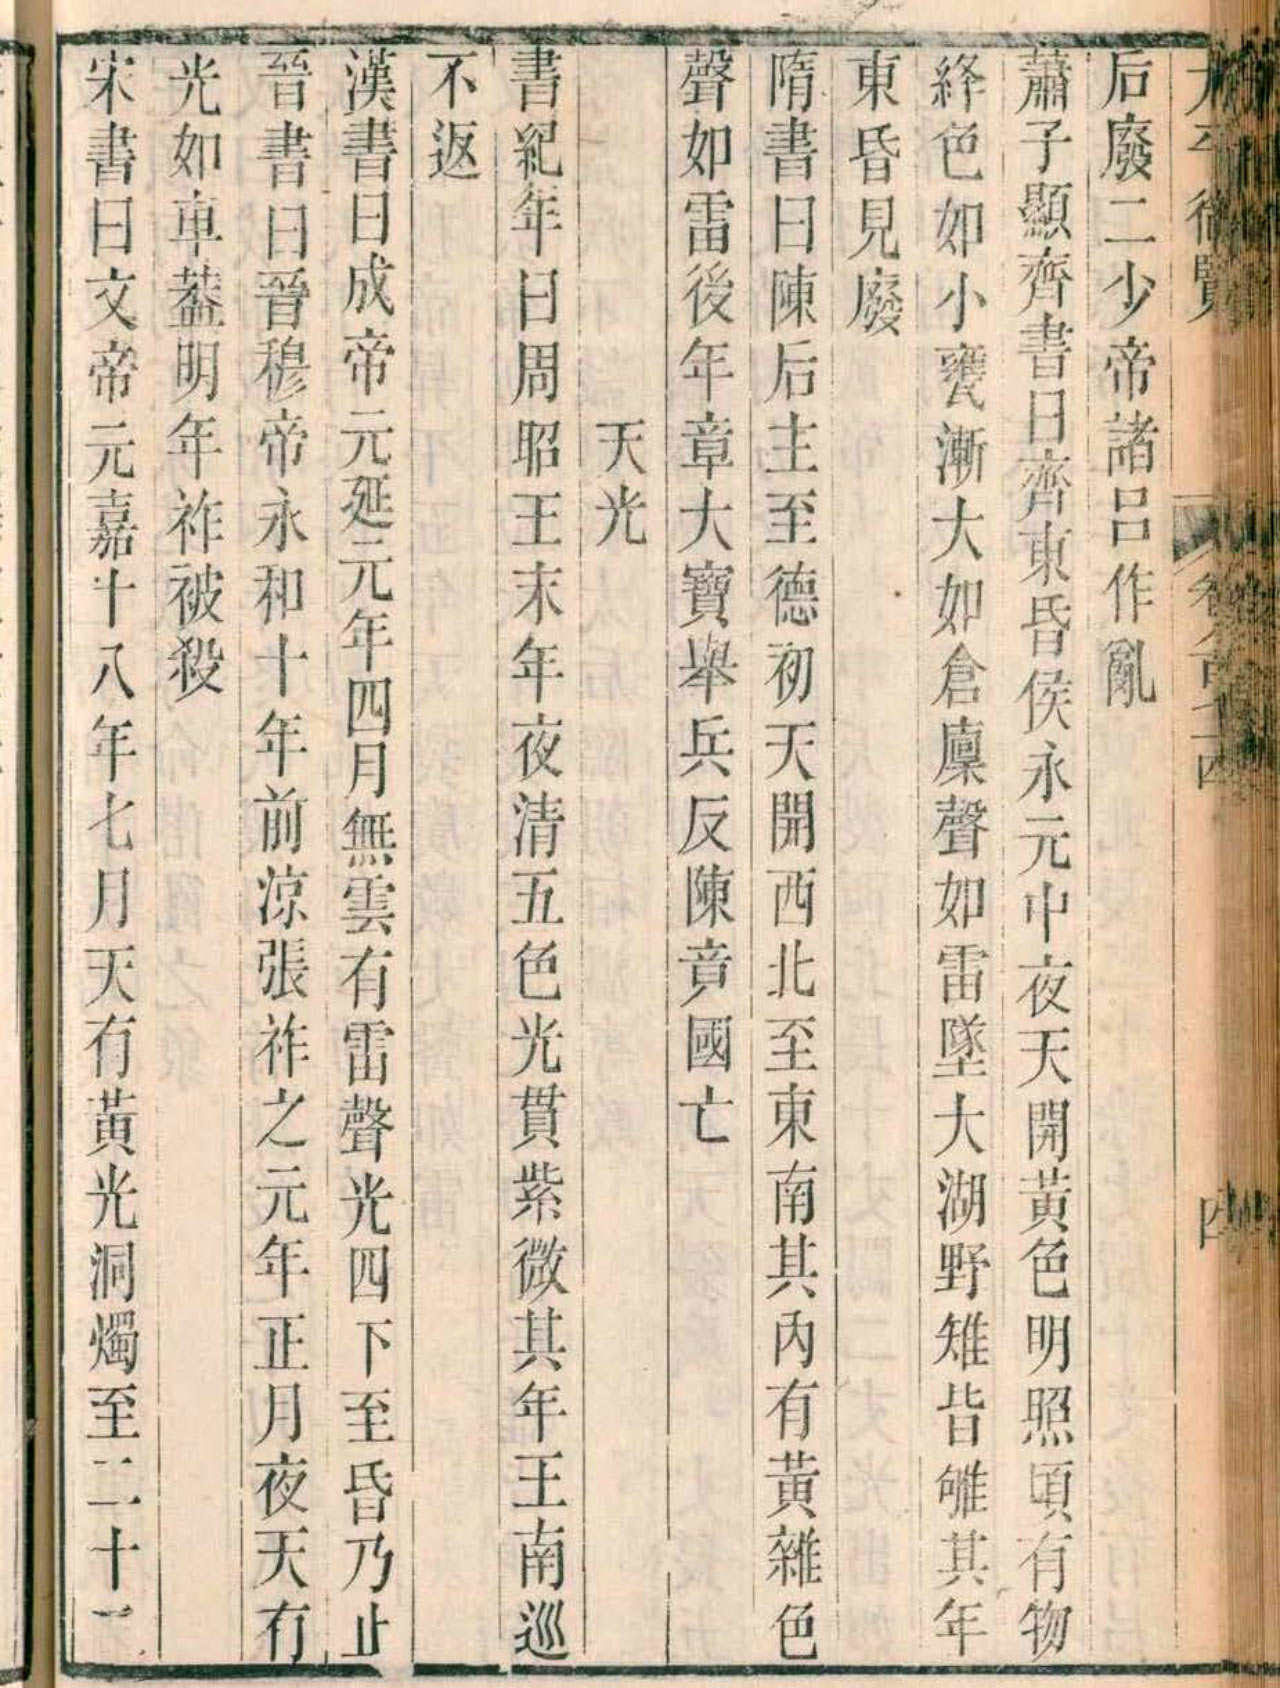 太平御覽 卷八百七十四 四
后廢二少帝諸呂作亂
蕭子顯齊書曰齊東昏侯永元中夜天開黃色明照頃有物
絳色如小甕漸大如倉廩聲如雷墜大湖野雉皆雊其年
東昏見廢
隋書曰陳后主至德初天開西北至東南其內有黃雜色
聲如雷後年章大寶舉兵反陳竟國亡
天光
書紀年曰周昭王末年夜清五色光貫紫微其年王南巡
不返
漢書曰成帝元延元年四月無雲有雷聲光四下至昏乃止
晉書曰晉穆帝永和十年前涼張祚之元年正月夜天有
光如車葢明年祚被殺
宋書曰文帝元嘉十八年七月天有黃光洞燭至二十一